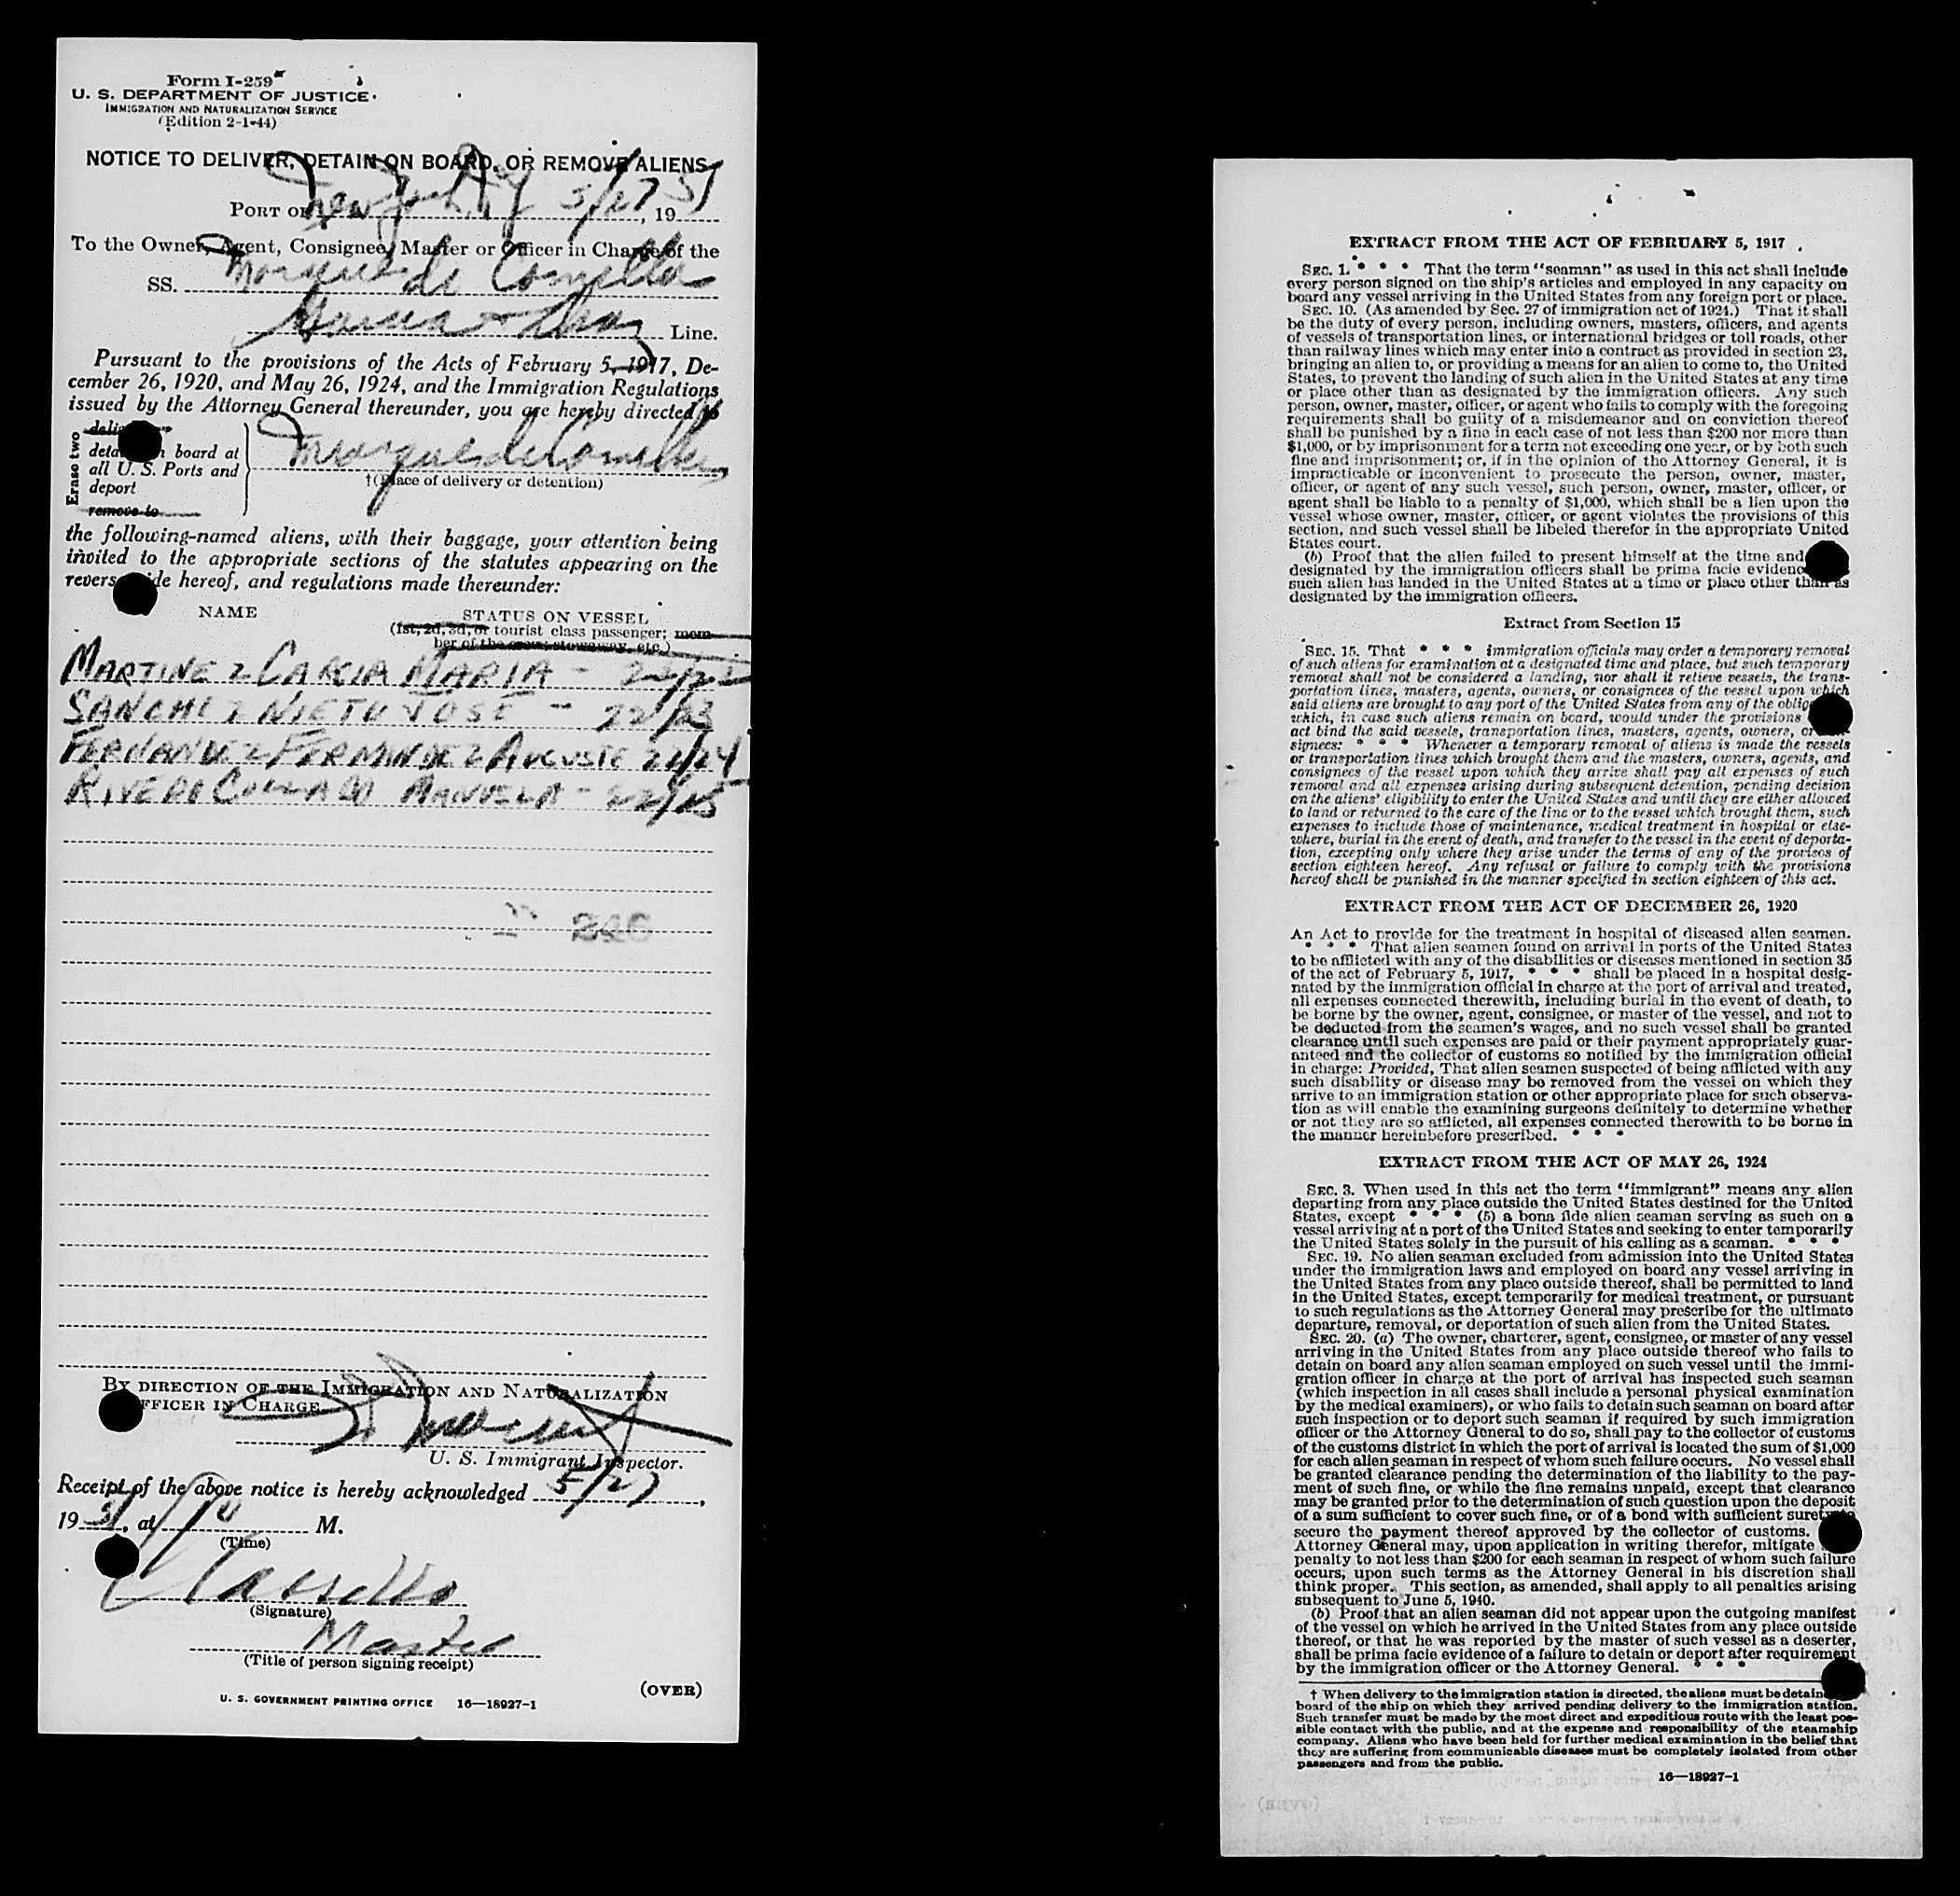 Form I-259
U. S. DEPARTMENT OF JUSTICE
IMMIGRATION AND NATURALIZATION SERVICE
(Edition 2-1-44)
NOTICE TO DELIVER, DETAIN ON BOARD, OR REMOVE ALIENS
PORT OF New York, NY 5/27, 1951
To the Owner, Agent, Consignee, Master or Officer in Charge of the
SS. Marques de Comillas
Garcia + Diaz Line.
Pursuant to the provisions of the Acts of February 5, 1917, De-
cember 26, 1920, and May 26, 1924, and the Immigration Regulations
issued by the Attorney General thereunder, you are hereby directed to
Erase two
board at
all U. S. Ports and
deport
remove to
Marques de Comillas
†(Place of delivery or detention)
the following-named aliens, with their baggage, your attention being
invited to the appropriate sections of the statutes appearing on the
revers de hereof, and regulations made thereunder:
NAME STATUS ON VESSEL
(1st, 2d, 3d, or tourist class passenger; mem-
ber of the crew; stowaway, etc.)
MARTINEZ GARCIA MARIA - 22/22
SANCHEZ NIETO JOSE - 22/23
FERNANDEZ FERNANDEZ AUGUSTE 22/24
RIVERO COLLADO MANUELA - 22/25
BY DIRECTION OF THE IMMIGRATION AND NATURALIZATION
FFICER IN CHARGE.
U. S. Immigrant Inspector.
Receipt of the above notice is hereby acknowledged 5/27,
1951, at M.
(Time)
(Signature)
Master
(Title of person signing receipt)
(OVER)
U. S. GOVERNMENT PRINTING OFFICE 16—18927-1
EXTRACT FROM THE ACT OF FEBRUARY 5, 1917
SEC. 1. * * * That the term "seaman" as used in this act shall include
every person signed on the ship's articles and employed in any capacity on
board any vessel arriving in the United States from any foreign port or place.
SEC. 10. (As amended by Sec. 27 of immigration act of 1924.) That it shall
be the duty of every person, including owners, masters, officers, and agents
of vessels of transportation lines, or international bridges or toll roads, other
than railway lines which may enter into a contract as provided in section 23,
bringing an alien to, or providing a means for an alien to come to, the United
States, to prevent the landing of such alien in the United States at any time
or place other than as designated by the immigration officers. Any such
person, owner, master, officer, or agent who fails to comply with the foregoing
requirements shall be guilty of a misdemeanor and on conviction thereof
shall be punished by a fine in each case of not less than $200 nor more than
$1,000, or by imprisonment for a term not exceeding one year, or by both such
fine and imprisonment; or, if in the opinion of the Attorney General, it is
impracticable or inconvenient to prosecute the person, owner, master,
officer, or agent of any such vessel, such person, owner, master, officer, or
agent shall be liable to a penalty of $1,000, which shall be a lien upon the
vessel whose owner, master, officer, or agent violates the provisions of this
section, and such vessel shall be libeled therefor in the appropriate United
States court.
(b) Proof that the alien failed to present himself at the time and
designated by the immigration officers shall be prima facie evidenc
such alien has landed in the United States at a time or place other than as
designated by the immigration officers.
Extract from Section 15
SEC. 15. That * * * immigration officials may order a temporary removal
of such aliens for examination at a designated time and place, but such temporary
removal shall not be considered a landing, nor shall it relieve vessels, the trans-
portation lines, masters, agents, owners, or consignees of the vessel upon which
said aliens are brought to any port of the United States from any of the oblig
which, in case such aliens remain on board, would under the provisions
act bind the said vessels, transportation lines, masters, agents, owners, or
signees: * * * Whenever a temporary removal of aliens is made the vessels
or transportation lines which brought them and the masters, owners, agents, and
consignees of the vessel upon which they arrive shall pay all expenses of such
removal and all expenses arising during subsequent detention, pending decision
on the aliens' eligibility to enter the United States and until they are either allowed
to land or returned to the care of the line or to the vessel which brought them, such
expenses to include those of maintenance, medical treatment in hospital or else-
where, burial in the event of death, and transfer to the vessel in the event of deporta-
tion, excepting only where they arise under the terms of any of the provisos of
section eighteen hereof. Any refusal or failure to comply with the provisions
hereof shall be punished in the manner specified in section eighteen of this act.
EXTRACT FROM THE ACT OF DECEMBER 26, 1920
An Act to provide for the treatment in hospital of diseased alien seamen.
* * * That alien seamen found on arrival in ports of the United States
to be afflicted with any of the disabilities or diseases mentioned in section 35
of the act of February 5, 1917, * * * shall be placed in a hospital desig-
nated by the immigration official in charge at the port of arrival and treated,
all expenses connected therewith, including burial in the event of death, to
be borne by the owner, agent, consignee, or master of the vessel, and not to
be deducted from the seamen's wages, and no such vessel shall be granted
clearance until such expenses are paid or their payment appropriately guar-
anteed and the collector of customs so notified by the immigration official
in charge: Provided, That alien seamen suspected of being afflicted with any
such disability or disease may be removed from the vessel on which they
arrive to an immigration station or other appropriate place for such observa-
tion as will enable the examining surgeons definitely to determine whether
or not they are so afflicted, all expenses connected therewith to be borne in
the manner hereinbefore prescribed. * * *
EXTRACT FROM THE ACT OF MAY 26, 1924
SEC. 3. When used in this act the term "immigrant" means any alien
departing from any place outside the United States destined for the United
States, except * * * (5) a bona fide alien seaman serving as such on a
vessel arriving at a port of the United States and seeking to enter temporarily
the United States solely in the pursuit of his calling as a seaman. * * *
SEC. 19. No alien seaman excluded from admission into the United States
under the immigration laws and employed on board any vessel arriving in
the United States from any place outside thereof, shall be permitted to land
in the United States, except temporarily for medical treatment, or pursuant
to such regulations as the Attorney General may prescribe for the ultimate
departure, removal, or deportation of such alien from the United States.
SEC. 20. (a) The owner, charterer, agent, consignee, or master of any vessel
arriving in the United States from any place outside thereof who fails to
detain on board any alien seaman employed on such vessel until the immi-
gration officer in charge at the port of arrival has inspected such seaman
(which inspection in all cases shall include a personal physical examination
by the medical examiners), or who fails to detain such seaman on board after
such inspection or to deport such seaman if required by such immigration
officer or the Attorney General to do so, shall pay to the collector of customs
of the customs district in which the port of arrival is located the sum of $1,000
for each alien seaman in respect of whom such failure occurs. No vessel shall
be granted clearance pending the determination of the liability to the pay-
ment of such fine, or while the fine remains unpaid, except that clearance
may be granted prior to the determination of such question upon the deposit
of a sum sufficient to cover such fine, or of a bond with sufficient surety to
secure the payment thereof approved by the collector of customs.
Attorney General may, upon application in writing therefor, mitigate
penalty to not less than $200 for each seaman in respect of whom such failure
occurs, upon such terms as the Attorney General in his discretion shall
think proper. This section, as amended, shall apply to all penalties arising
subsequent to June 5, 1940.
(b) Proof that an alien seaman did not appear upon the outgoing manifest
of the vessel on which he arrived in the United States from any place outside
thereof, or that he was reported by the master of such vessel as a deserter,
shall be prima facie evidence of a failure to detain or deport after requirement
by the immigration officer or the Attorney General. * * *
† When delivery to the immigration station is directed, the aliens must be detain
board of the ship on which they arrived pending delivery to the immigration station.
Such transfer must be made by the most direct and expeditious route with the least pos-
sible contact with the public, and at the expense and responsibility of the steamship
company. Aliens who have been held for further medical examination in the belief that
they are suffering from communicable diseases must be completely isolated from other
passengers and from the public.
16—18927-1